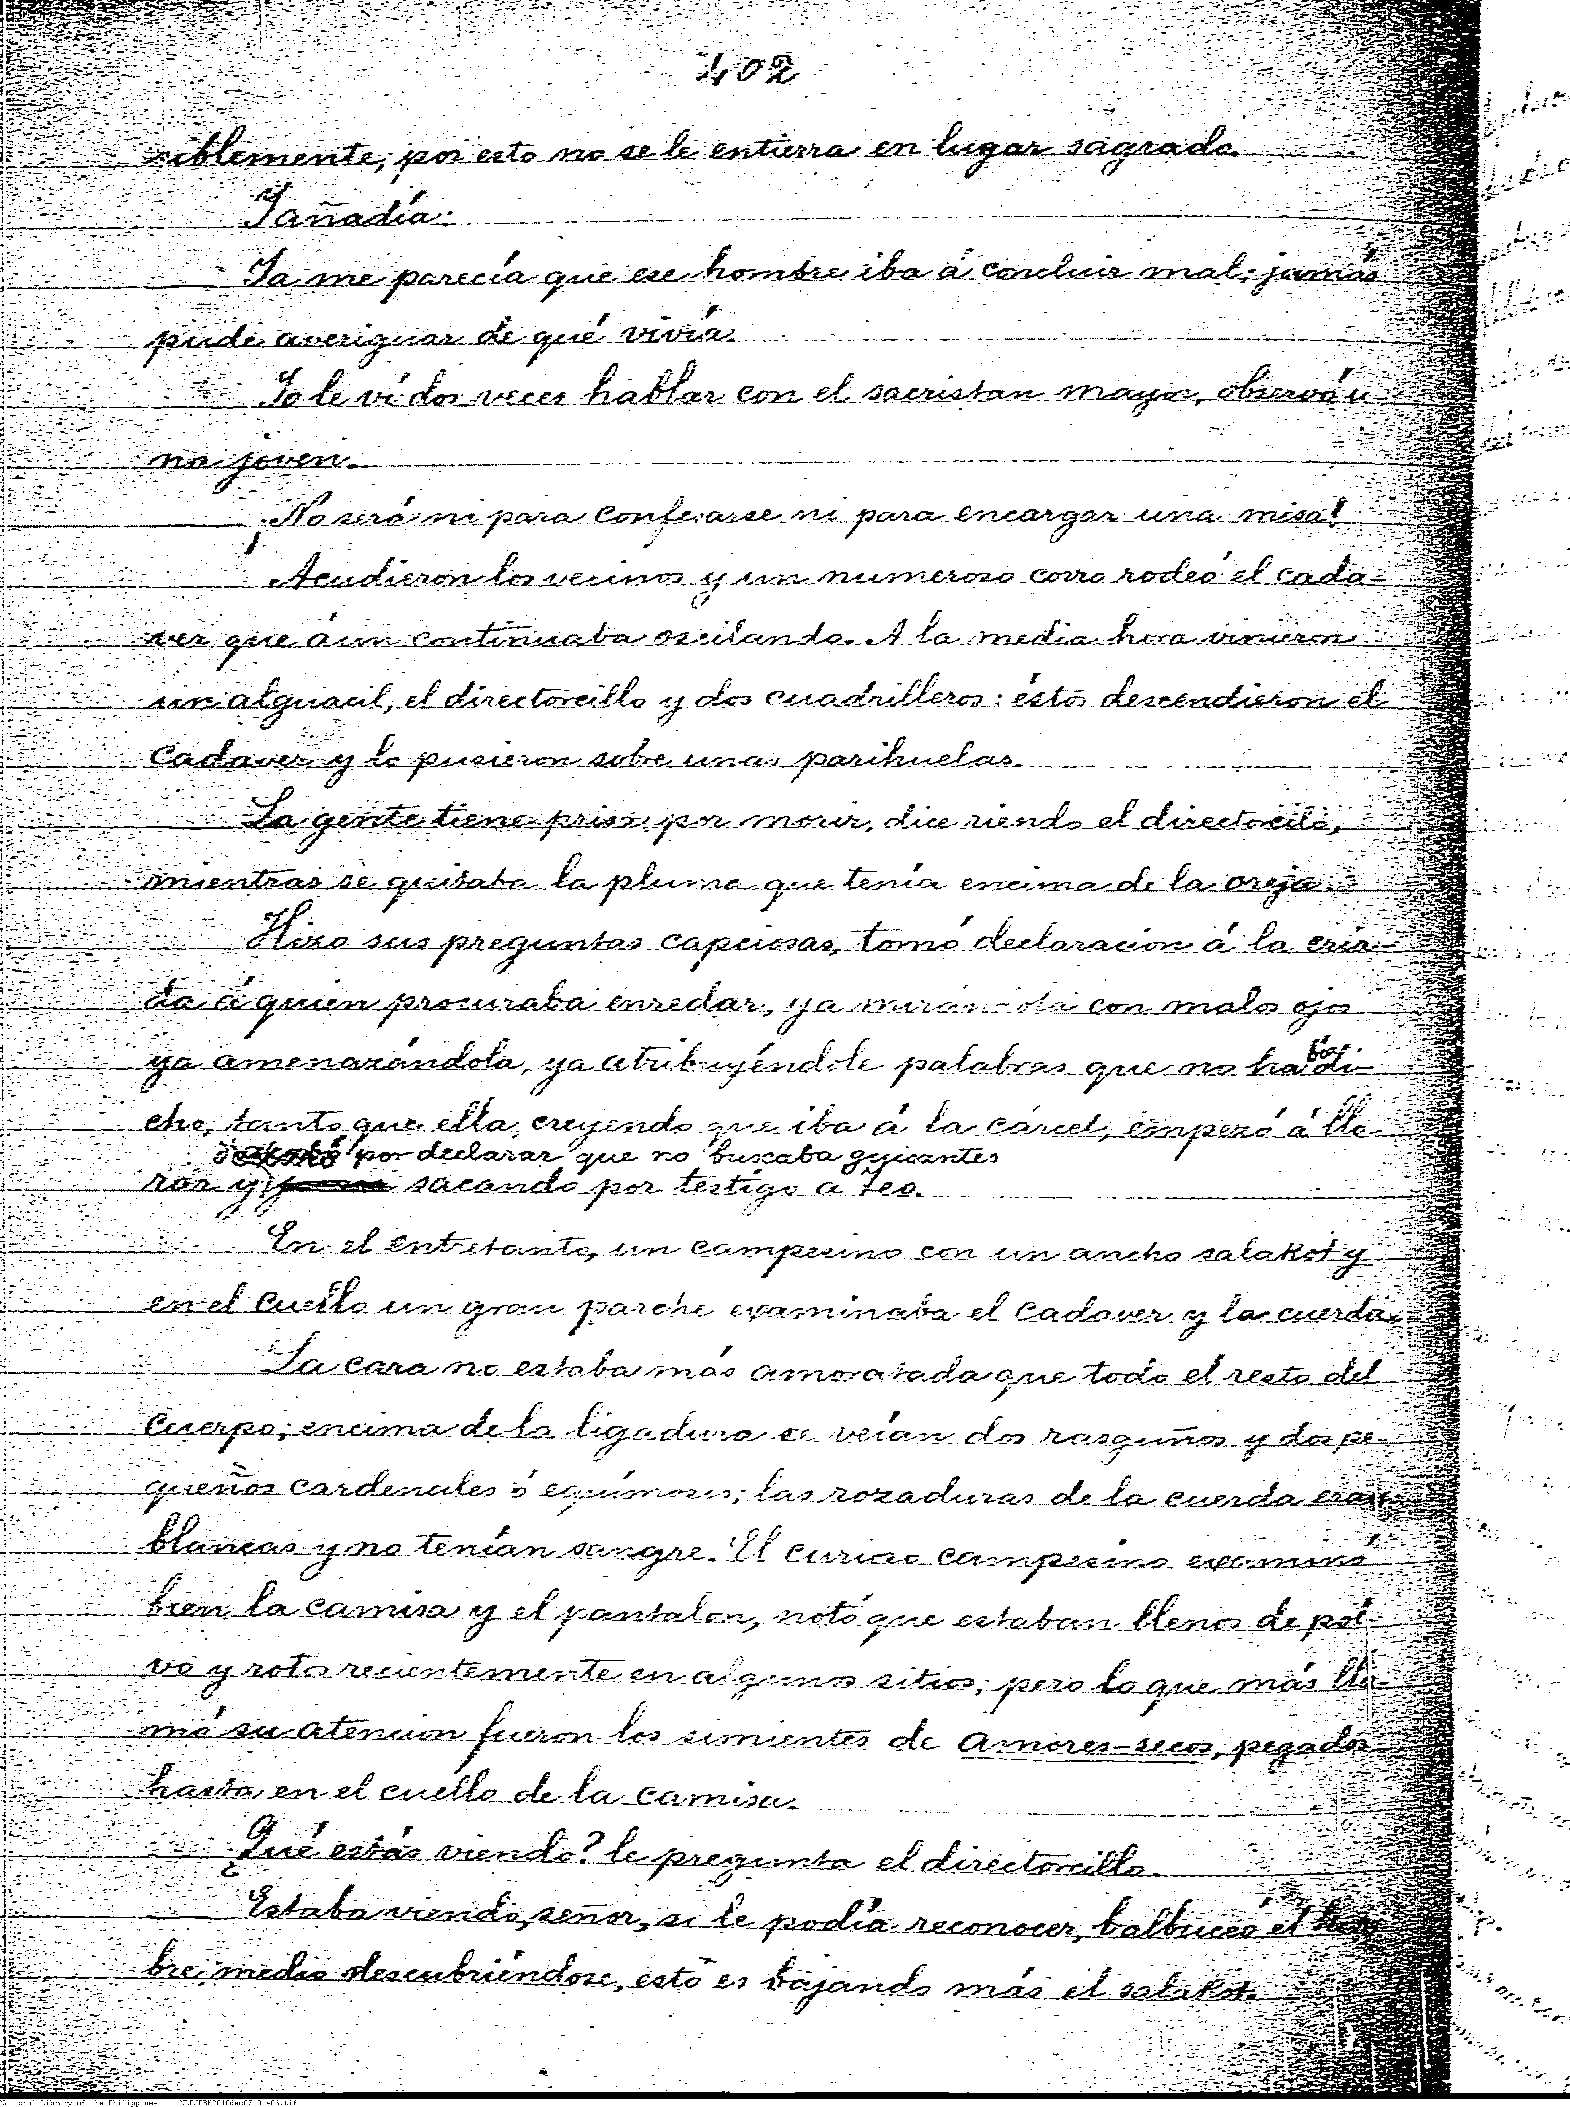 402
siblemente, por esto no se le entierra en lugar sagrado.
Y añadía:
Ya me parecía que ese hombre iba á concluir mal; jamás
pude averiguar de qué vivía.
Yo le ví dos veces hablar con el sacristan mayor, observó u
na joven.
¡No será ni para confesarse ni para encargar una misa!
Acudieron los vecinos y un numeroso corro rodeó el cada-
ver que áun continuaba oscilando. A la media hora vinieron
un alguacil, el directorcillo y dos cuadrilleros: éstos descendieron el
cadaver y lo pusieron sobre unas parihuelas.
La gente tiene prisa por morir, dice riendo el directorcillo,
mientras se quitaba la pluma que tenía encima de la oreja.
Hizo sus preguntas capciosas, tomó declaracion á la cria-
da á quien procuraba enredar, ya mirándola con malos ojos
ya amenazándola, ya atribuyéndole palabras que no había di-
cho, tanto que ella, creyendo que iba á la cárcel, empezó á llo
por declarar que no buscaba guisantes
rar y sacando por testigo á Teo.
En el entretanto, un campesino con un ancho salakot y
en el cuello un gran parche examinaba el cadaver y la cuerda.
La cara no estaba más amoratada que todo el resto del
cuerpo; encima de la ligadura se veían dos rasguños y dos pe-
queños cardenales ó equímosis; las rozaduras de la cuerda eran
blancas y no tenían sangre. El curioso campesino examinó
bien la camisa y el pantalon, notó que estaban llenos de pol-
vo y rotos recientemente en algunos sitios; pero lo que más lla-
mó su atencion fueron los simientes de amores-secos, pegados
hasta en el cuello de la camisa.
¿Qué estás viendo? le pregunta el directorcillo.
Estaba viendo, señor, si le podía reconocer, balbuceó el hom
bre, medio descubriéndose, esto es bajando más el salakot.